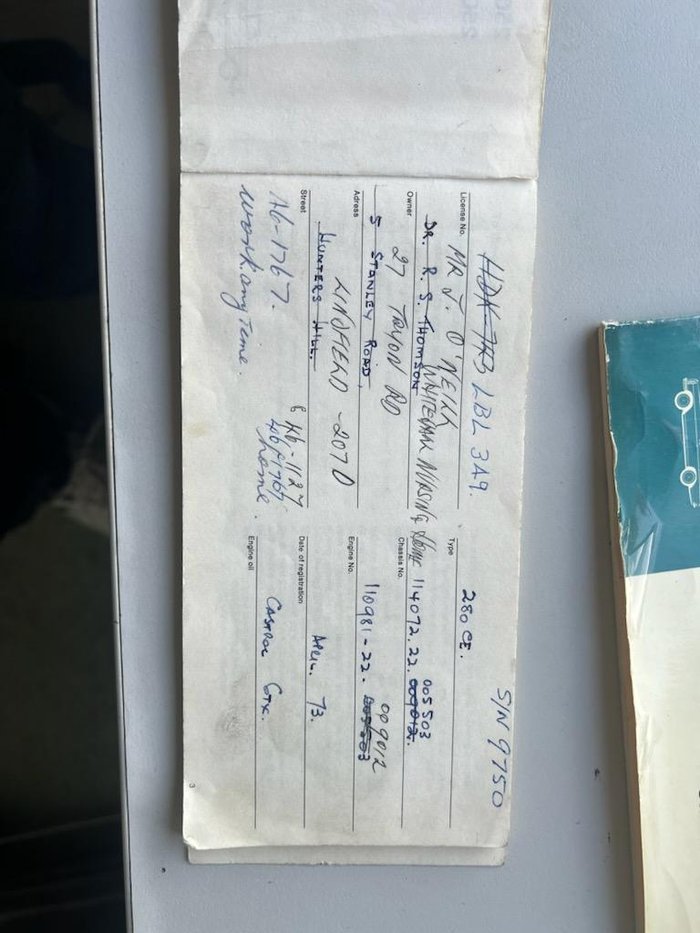 S/N 9750
HDK-783 LBL 349.
MR J. O'NEILL
License No.
DR. R. S. THOMSON
NURSING Home
Owner
27 TRYON RD
5 STANLEY ROAD,
Adress
LINDFIELD - 2070
HUNTERS HILL.
Street
46-1127
46-1767
46-1767.
home.
work any Time.
280 CE.
Type
005503
114072.22. 009012.
Chassis No.
009012
110981-22. 005503
Engine No.
APRIL. 73.
Date of registration
CASTROL GTX.
Engine oil
3